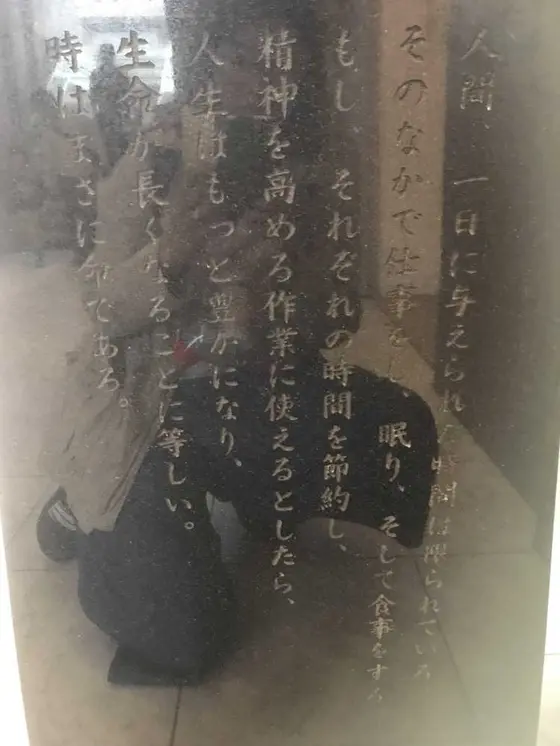 人間、一日に与えられた時間は限られている
そのなかで仕事をし、眠り、そして食事をする
もし、それぞれの時間を節約し、
精神を高める作業に使えるとしたら、
人生はもっと豊かになり、
生命が長くなることに等しい。
時はまさに命である。